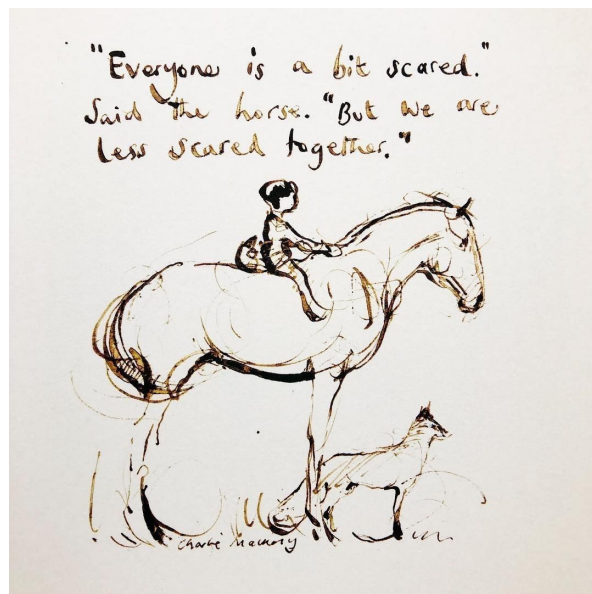 "Everyone is a bit scared."
Said the horse. "But we are
less scared together."
Charlie Mackesy